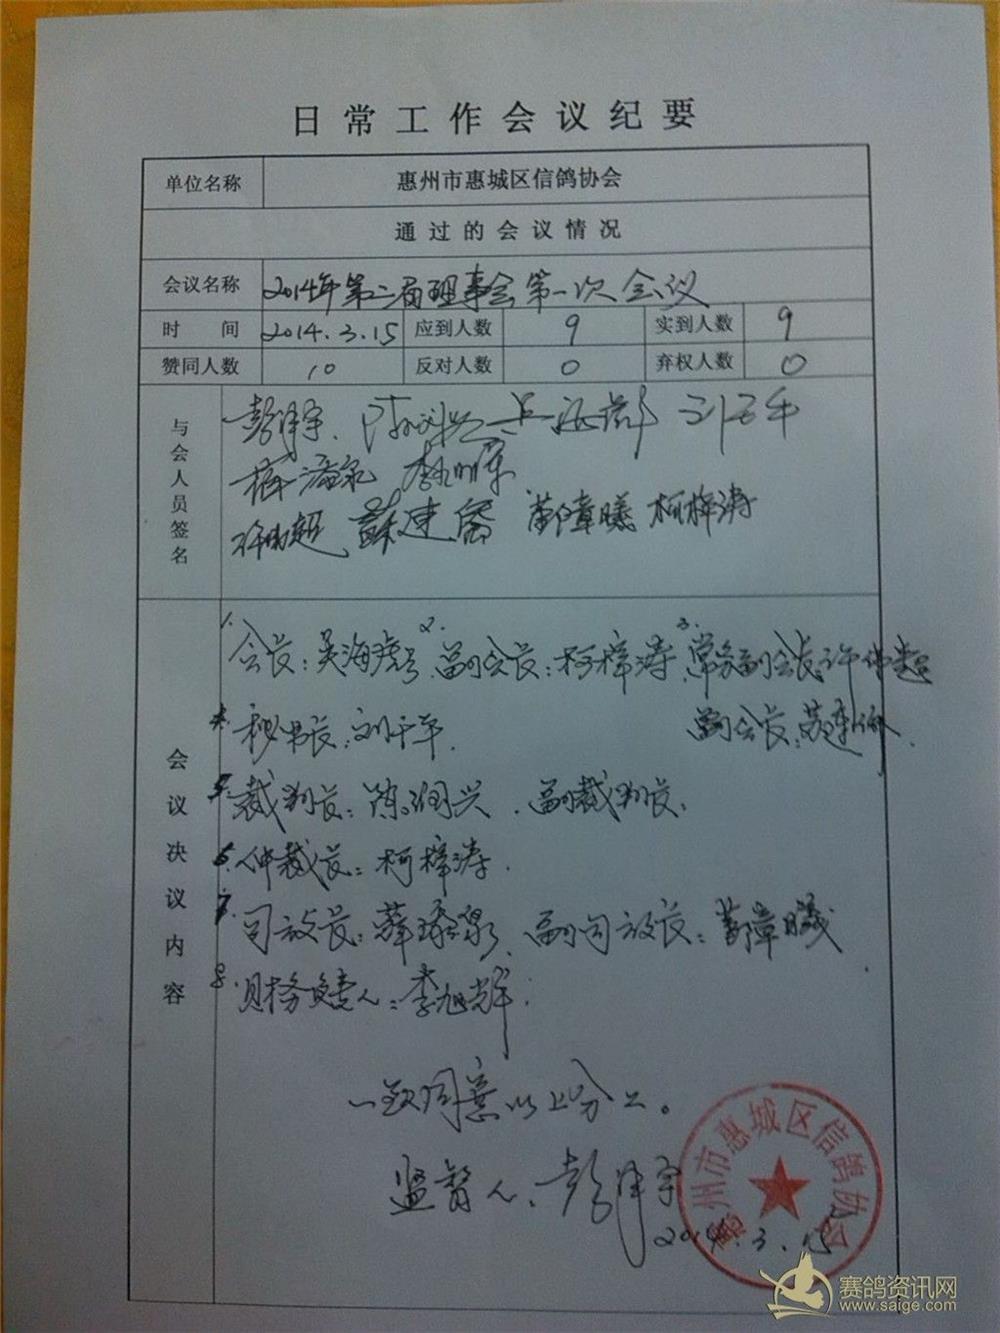 日常工作会议纪要
单位名称 惠州市惠城区信鸽协会
通过的会议情况
会议名称 2014年第二届理事会第一次会议
时 间 2014.3.15 应到人数 9 实到人数 9
赞同人数 10 反对人数 0 弃权人数 0
与会人员签名
彭泽宇、陈润兴
苏建 柯梓涛
会议决议内容
1. 会长:吴海 2. 副会长:柯梓涛、3. 常务副会长:许
4. 秘书长:刘千年. 副会长:苏建
5. 裁判长:陈润兴. 副裁判长.
6. 仲裁长:柯梓涛.
7. 司放长:薛 泉、副司放长: 章曦
8. 财务负责人:李旭辉.
一致同意以上分工。
监督人、彭泽宇
2014.3.15
惠州市惠城区信鸽协会
赛鸽资讯网
www.saige.com